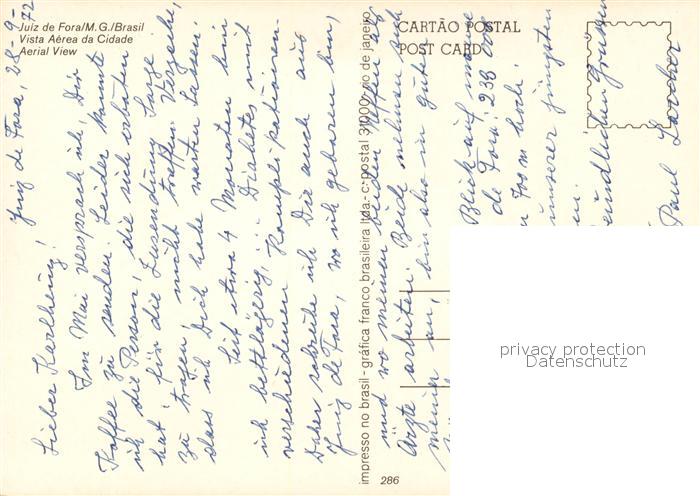 Juiz de Fora/M.G./Brasil
Vista Aérea da Cidade
Aerial View
CARTÃO POSTAL
POST CARD
impresso no brasil - gráfica franco brasileira ltda.- c. postal 31000 - rio de janeiro
286
Juiz de Fora, 28-9-72
Lieber Karlheinz!
Im Mai versprach ich, Dir
Kaffee zu senden. Leider konnte
ich die Person, die sich erboten
hat für die Zusendung Sorge
zu tragen, nicht treffen. Verzeihe,
dass ich Dich habe warten lassen.
Seit etwa 4 Monaten bin
ich bettlägerig, Diabetes mit
verschiedenen Komplikationen.
Daher schreibe ich Dir auch aus
Juiz de Fora, wo ich geboren bin,
und wo meine beiden Neffen als
Ärzte arbeiten. Beide nehmen sich
meiner an, bin also in guten
Blick auf
de Fora! 238 000
hoch!
unserer jüngsten
freundlichen Grüßen
Paul
privacy protection
Datenschutz